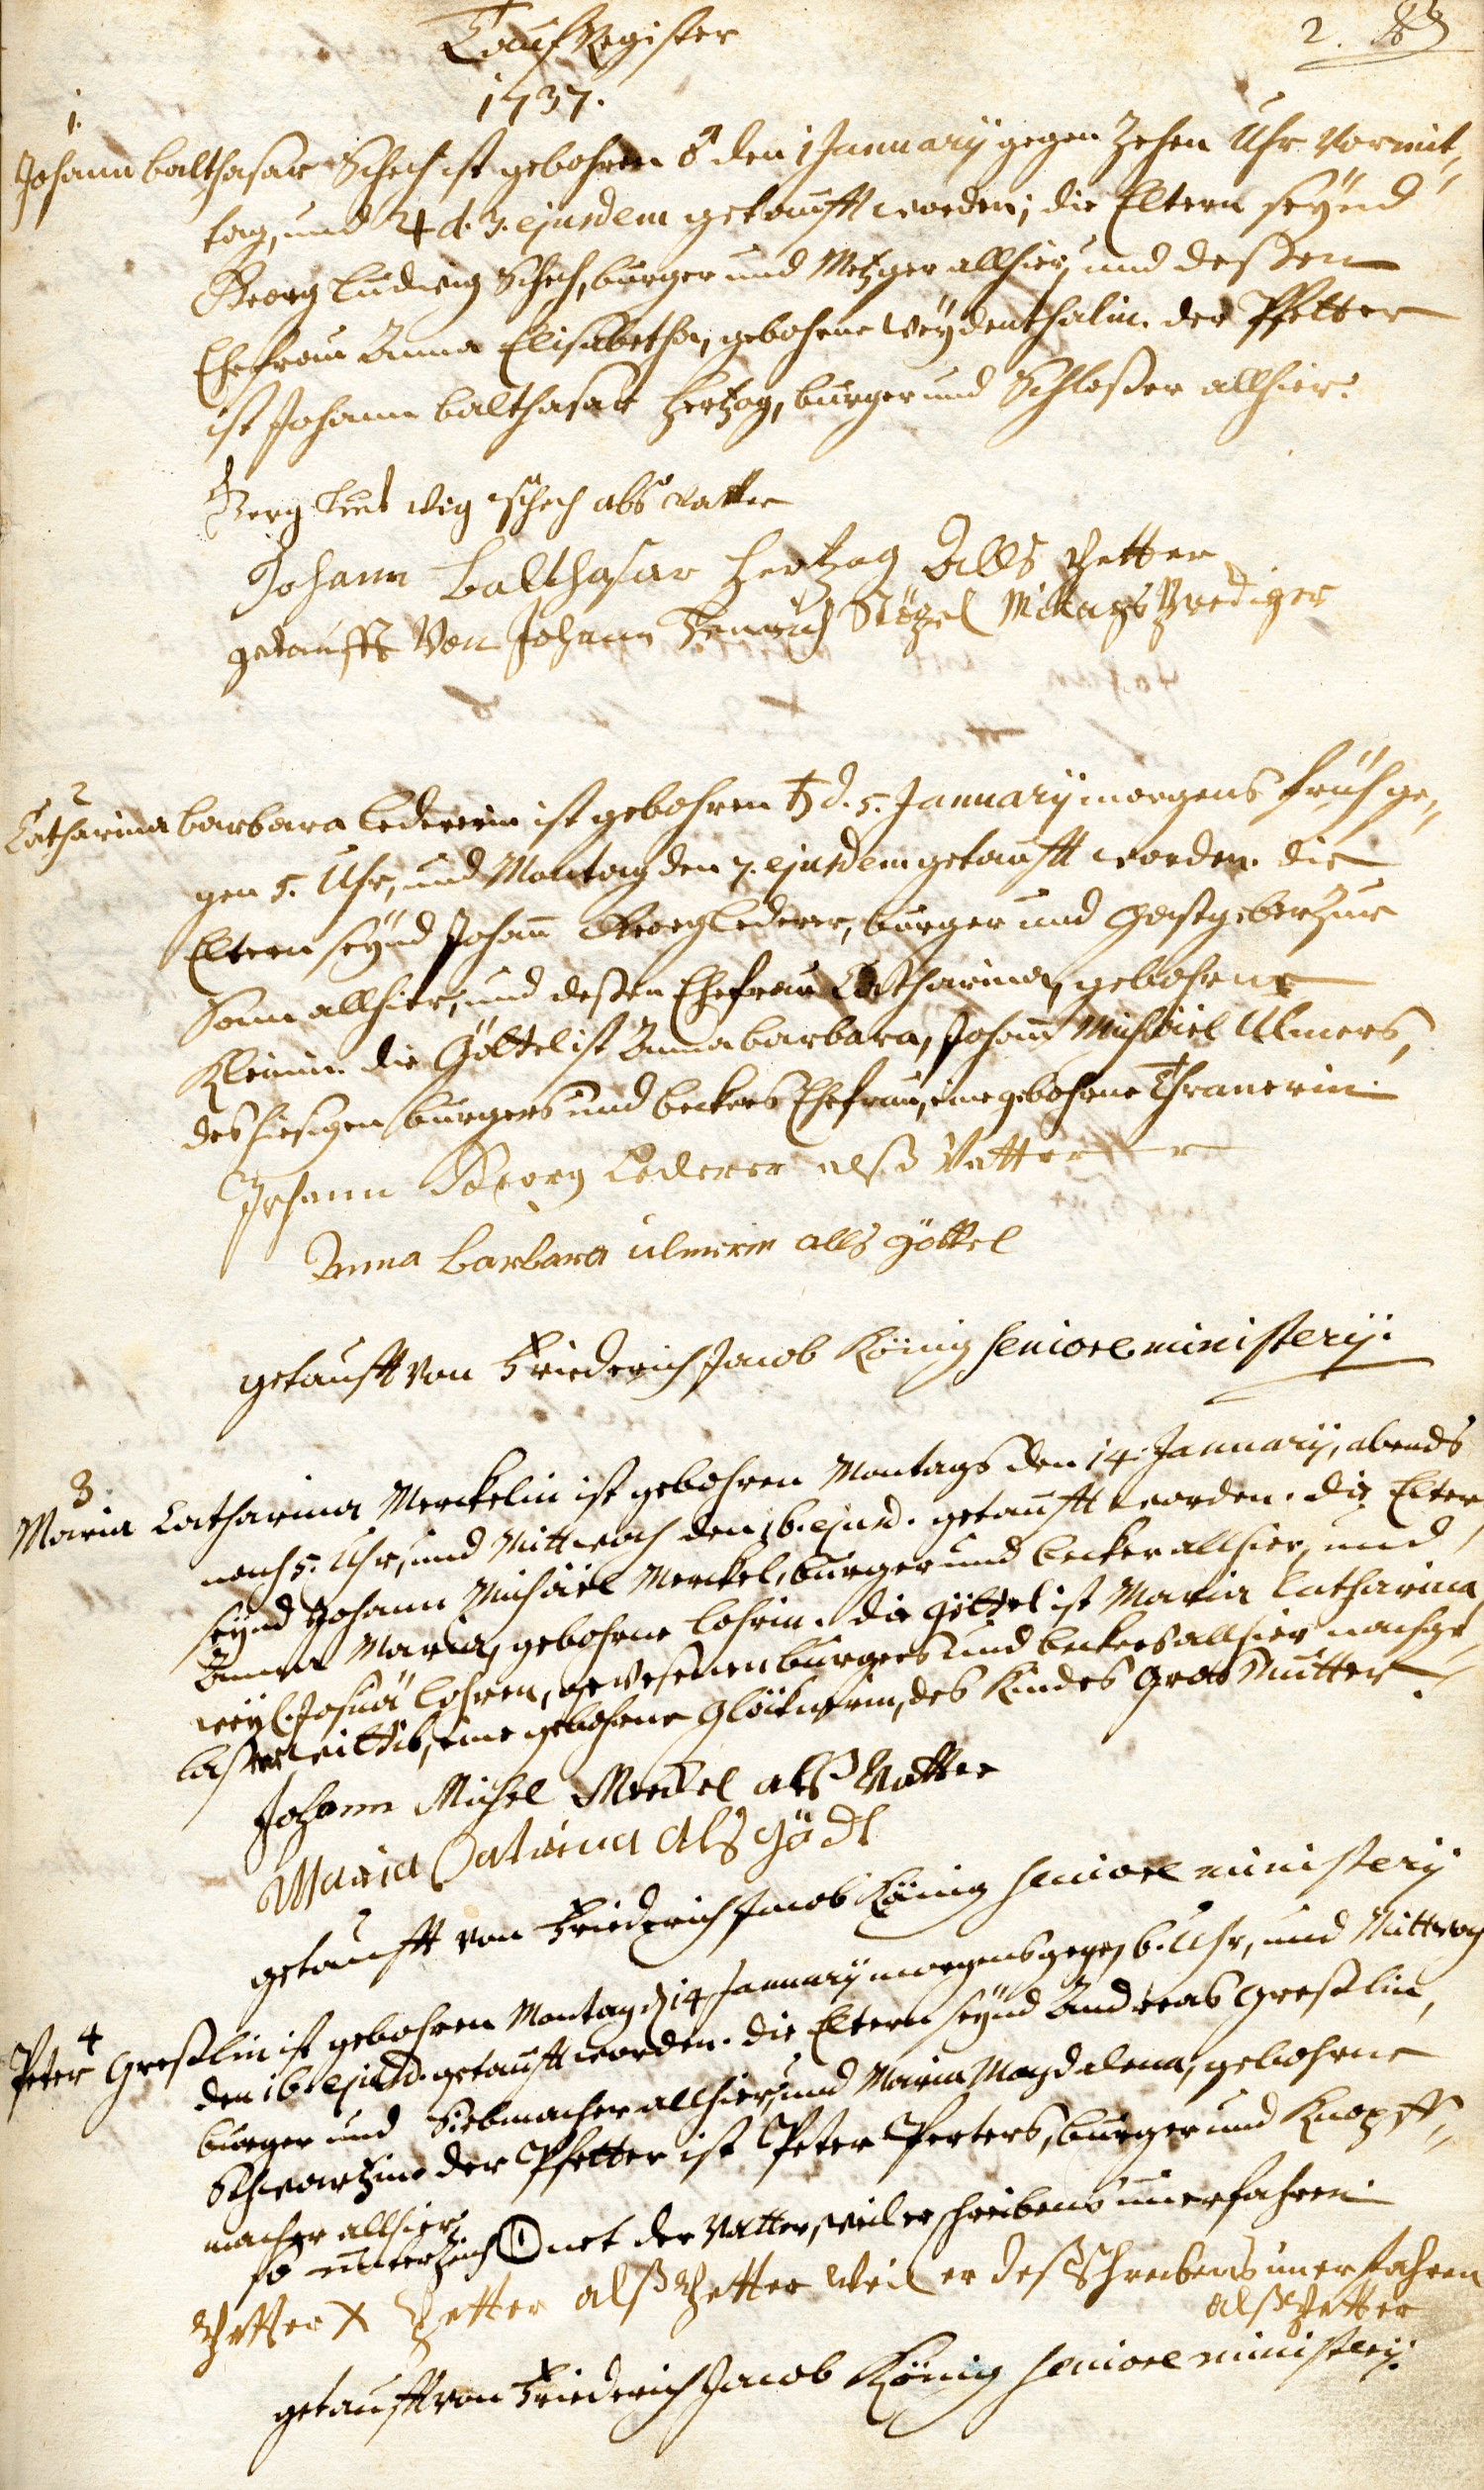 Tauf Register
2.
1737.
1.
Johann Balthasar Schech ist gebohren ♂ den 1 Januarij gegen Zehen Uhr Vormit⸗
tag, und ♃ d. 3. ejusdem getaufft worden; die Eltern seÿnd
Georg Ludwig Schech, burger und Metzger allhier, und deßen
Ehefrau Anna Elisabetha, gebohrne Weÿdenthalin. der Pfetter
ist Johann Balthasar Hertzog, burger und Schloßer allhier.
Gerg Lud wig schech alß vatter
Johann Balthasar Hertzog Alls Petter
getaufft Von Johann Henrich Stözel Mittags Prediger
2
Catharina Barbara Ledererin ist gebohren ♄ d. 5. Januarij morgens früh ge⸗
gen 5. Uhr, und Montag den 7. ejusdem getaufft worden. die
Eltern seÿnd Johann Georg Lederer, burger und Gastgeber zur
Sonn allhier, und deßen Ehefrau Catharina, gebohrne
Kleinin. die Göttel ist Anna barbara, Johann Michäel Ulmers,
des hiesigen burgers und beckers Ehefrau, eine gebohrne Thranerin.
Johann Georg Lederer alß Vatter
Anna barbara ulmerin alls göttel
getaufft von Friederich Jacob König seniore ministerij.
3
Maria Catharina Merckelin ist gebohren Montags den 14. Januarij, abends
nach 5. Uhr, und Mittwoch den 16. ejusd. getaufft worden. die Elter
seÿnd Johann Michäel Merckel, burger und becker allhier, und
Anna Maria, gebohrne Lohrin. die göttel ist Maria Catharina,
weÿl. Josuä Lohren, gewesenen burgers und beckers allhier nachge⸗
laßene wittib, eine gebohrne Glöcknerin, des Kindes Gros Mutter.
Johann Michel Merckel alß Vatter
Maria Catrina als gödl
getaufft von Friederich Jacob König seniore ministerij
4
Peter Greßlin ist gebohren Montag d 14 Januarij morgens gegen 6. Uhr, und Mittwoch
den 16. ejusd. getaufft worden. die Eltern seÿnd Andreas Greßlin,
burger und Siebmacher allhier, und Maria Magdalena, gebohrne
Schwartzin. der Pfetter ist Peter Perters, burger und Knopff⸗
macher allhier.
so unterzeich net der Vatter, weil er schreibens unerfahren.
Petter X Petter alß Petter weil er deß Schreibens unerfahren
alß Petter
getaufft von Friederich Jacob König seniore ministerij.